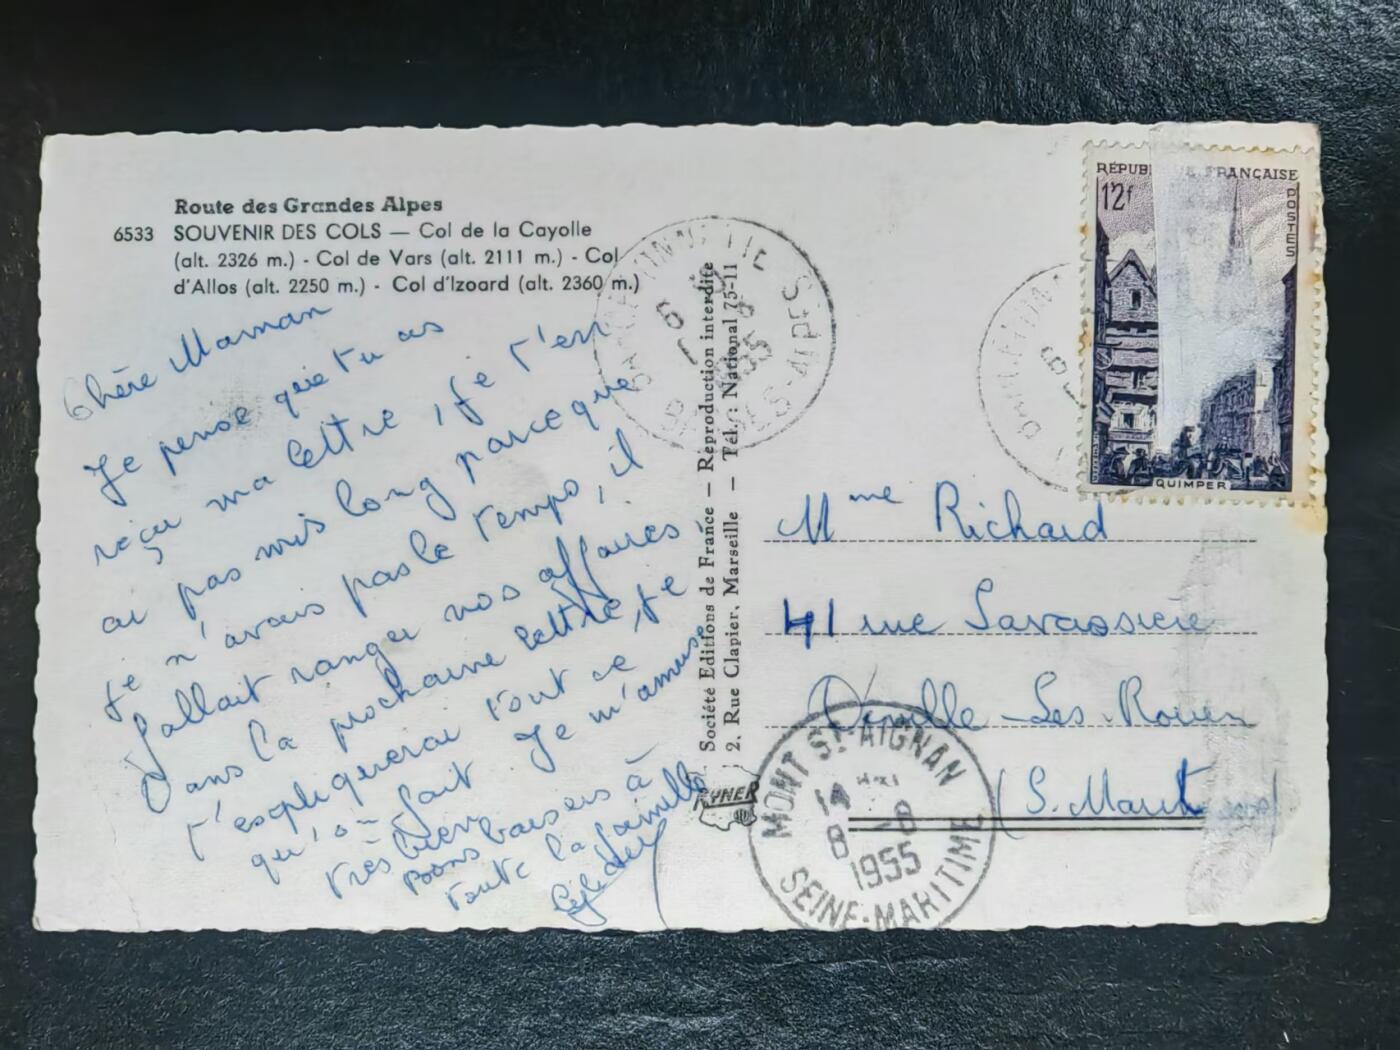 Route des Grandes Alpes
6533 SOUVENIR DES COLS — Col de la Cayolle
(alt. 2326 m.) - Col de Vars (alt. 2111 m.) - Col
d'Allos (alt. 2250 m.) - Col d'Izoard (alt. 2360 m.)
Chère Maman
Je pense que tu as
reçu ma lettre, je t'en
ai pas mis long parce que
je n'avais pas le temps, il
fallait ranger nos affaires
Dans la prochaine lettre, je
t'expliquerai tout ce
qu'on fait Je m'amuse
très bien
Bons baisers à
toute la famille
Société Editions de France — Reproduction interdite
2, Rue Clapier, Marseille — Tél.: National 75-11
RYNER
RÉPUBLIQUE FRANÇAISE
12f
POSTES
QUIMPER
Mme Richard
41 rue
Déville-Les-Rouen
(S. Maritime)
MONT ST-AIGNAN
14 H
8 -8
1955
SEINE-MARITIME